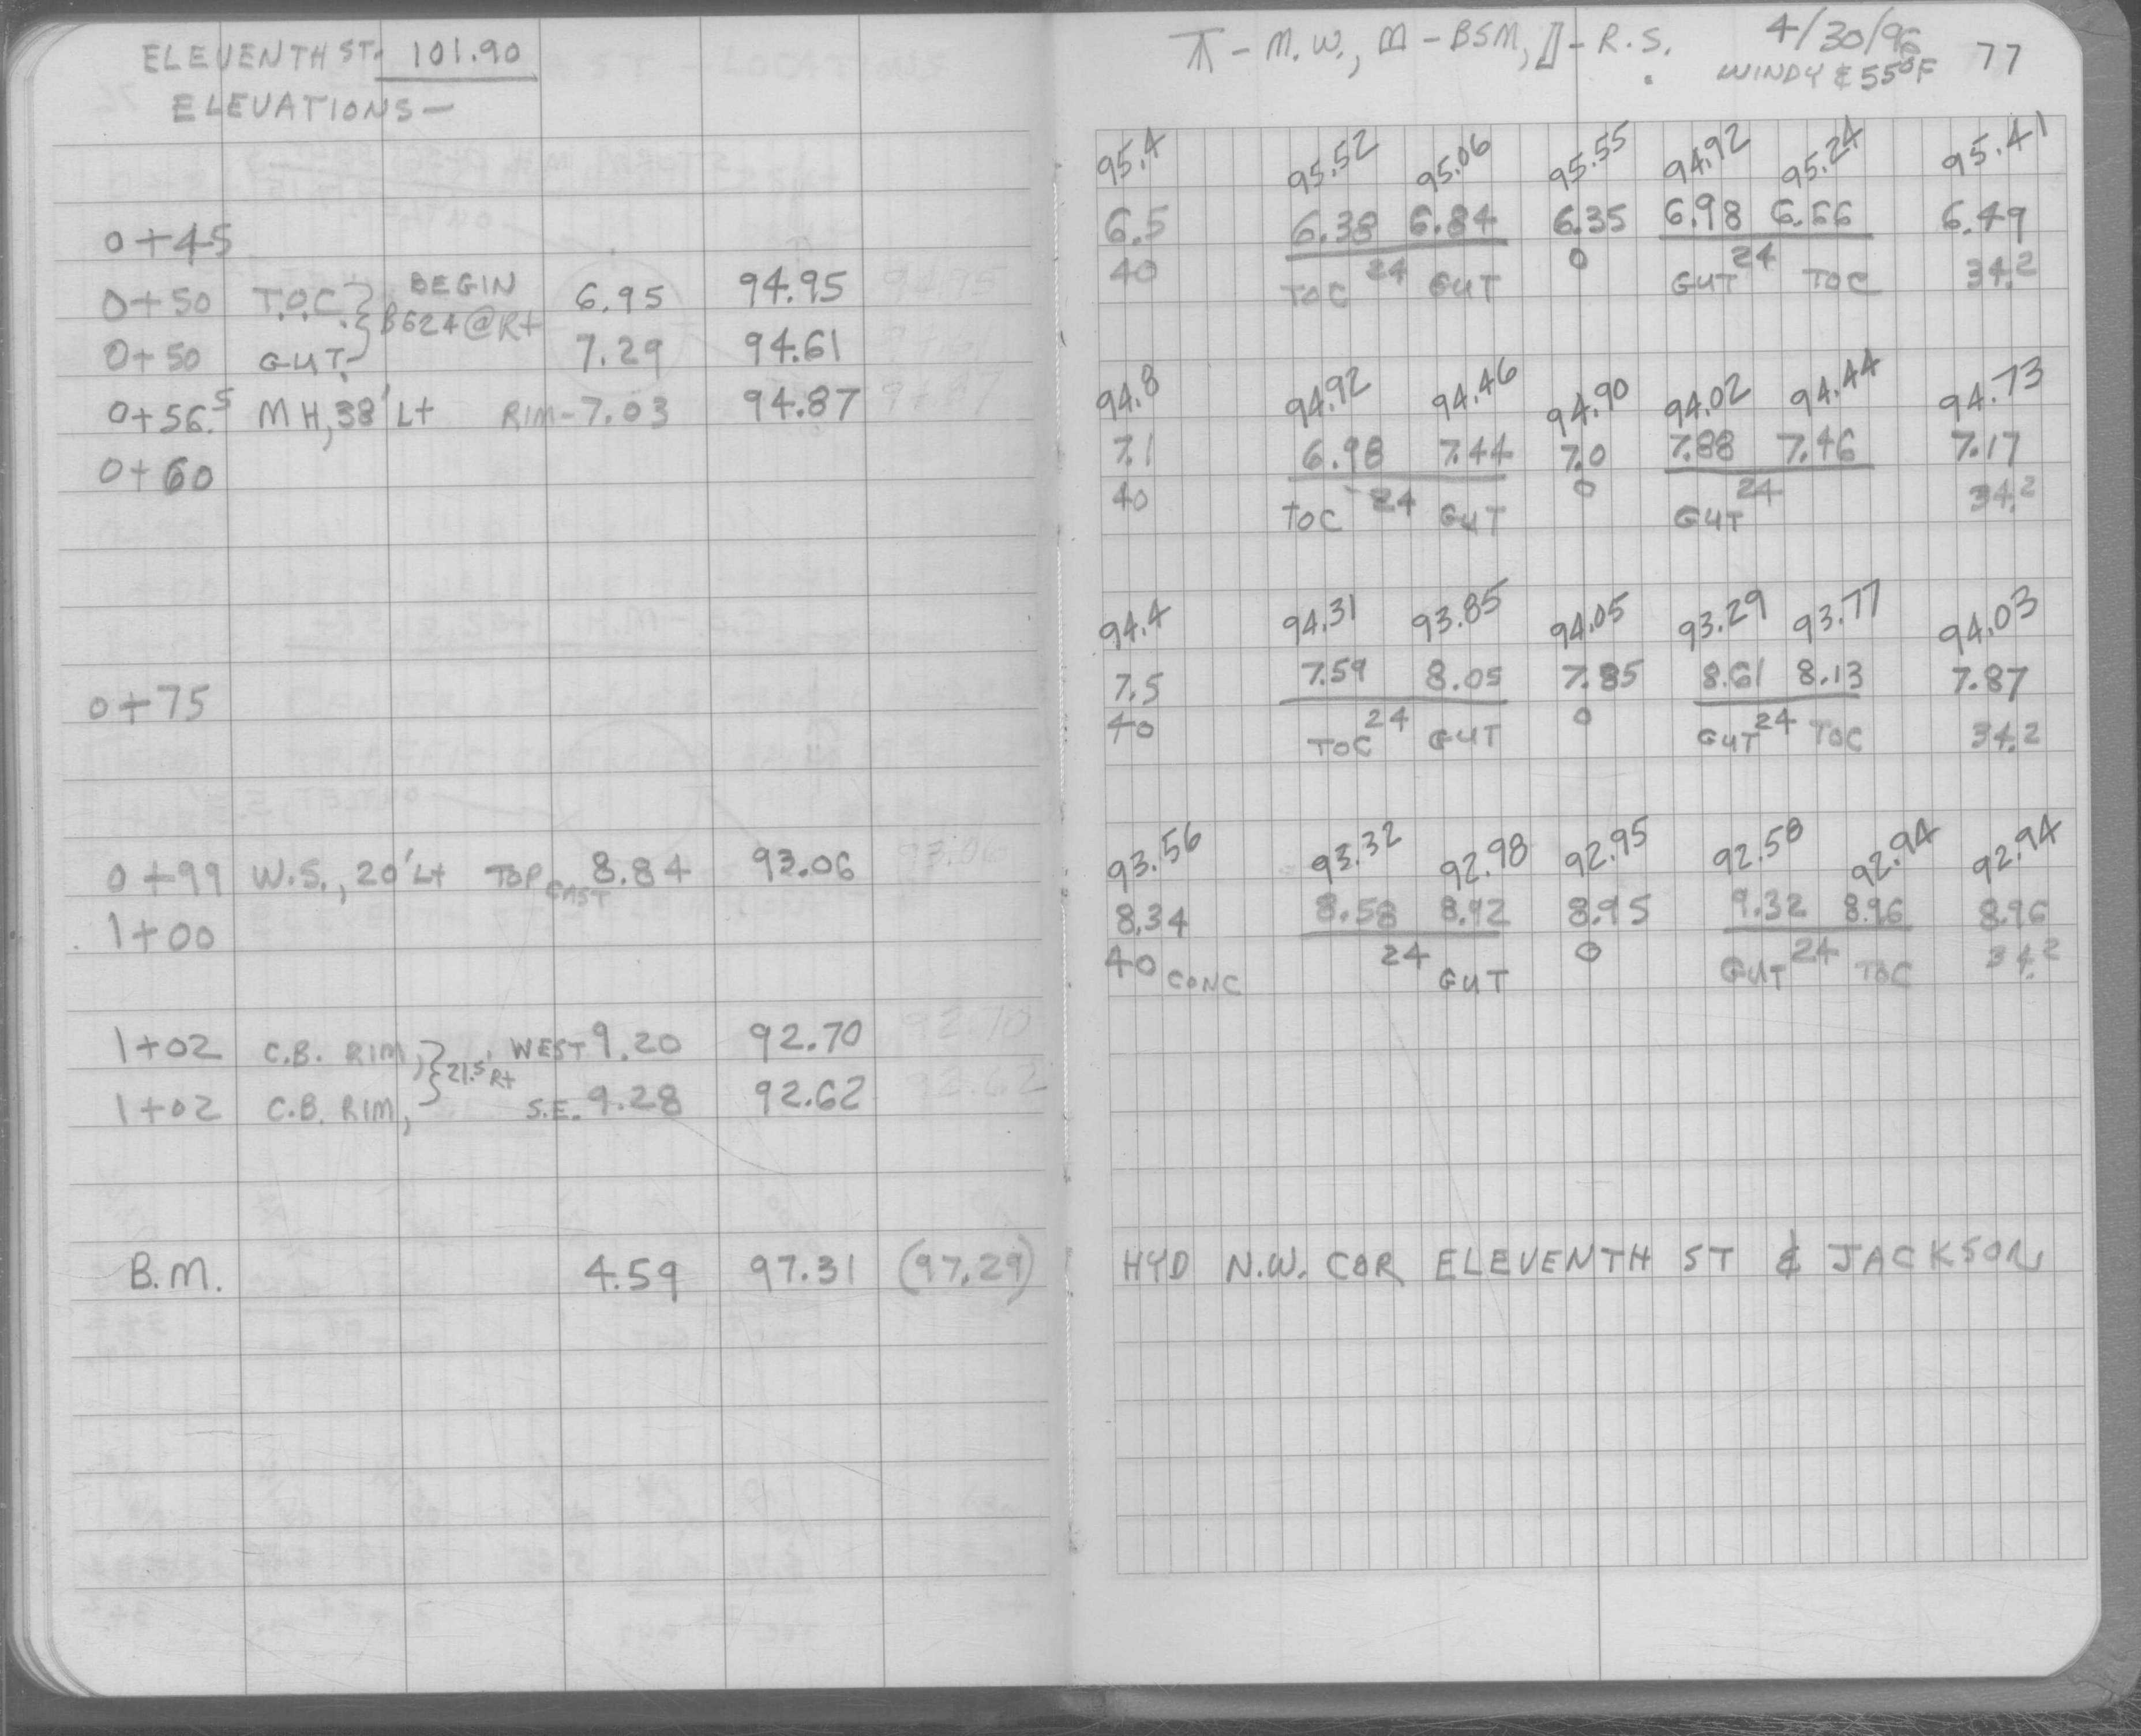 ELEVENTH ST. 101.90
ELEVATIONS—
0+45
0+50 T.O.C. } BEGIN 6.95 94.95 94.95
B624@Rt
0+50 GUT. 7.29 94.61 94.61
0+56.5 MH, 38' Lt RIM-7.03 94.87 94.87
0+60
0+75
0+99 W.S., 20' Lt TOP CAST 8.84 93.06 93.06
1+00
1+02 C.B. RIM, } WEST 9.20 92.70 92.70
21.5' Rt
1+02 C.B. RIM, S.E. 9.28 92.62 92.62
B.M. 4.59 97.31 (97.29)
⊼ - M.W., - BSM, - R.S. 4/30/96 77
WINDY & 55°F
95.4 95.52 95.06 95.55 94.92 95.24 95.41
6.5 6.38 6.84 6.35 6.98 6.66 6.49
40 TOC 24 GUT 0 GUT 24 TOC 34.2
94.8 94.92 94.46 94.90 94.02 94.44 94.73
7.1 6.98 7.44 7.0 7.88 7.46 7.17
40 TOC 24 GUT 0 GUT 24 34.2
94.4 94.31 93.85 94.05 93.29 93.77 94.03
7.5 7.59 8.05 7.85 8.61 8.13 7.87
40 TOC 24 GUT 0 GUT 24 TOC 34.2
93.56 93.32 92.98 92.95 92.58 92.94 92.94
8.34 8.58 8.92 8.95 9.32 8.96 8.96
40 CONC 24 GUT 0 GUT 24 TOC 34.2
HYD N.W. COR ELEVENTH ST & JACKSON